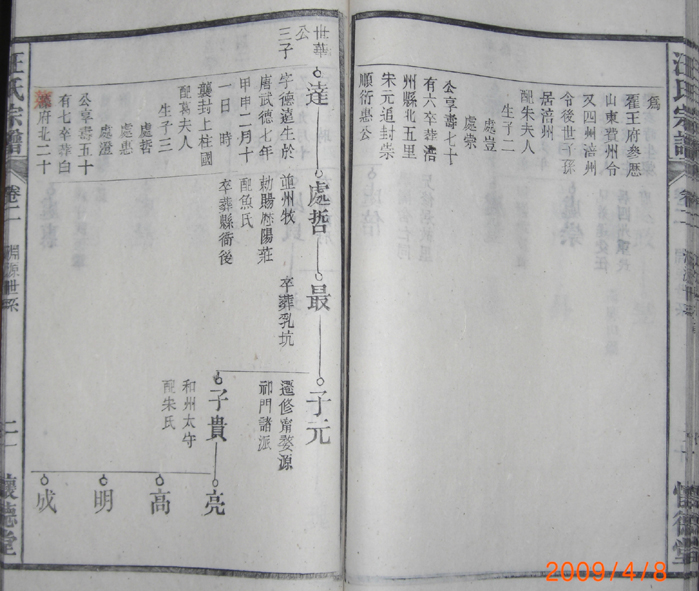 為
霍王府參惒
山東費州令
又四州涪州
令後世子孫
居涪州
配朱夫人
生子二
處崇
處豈
公享壽七十
有六卒葬涪
州縣北五里
宋元追封崇
順衍惠公
汪氏宗譜
卷二
懷德堂
世華公三子
達
字德遠生於
唐武德七年
甲申二月十
一日時
襲封上柱國
配葛夫人
生子三
處哲
處惠
處澄
公享壽五十
有七卒葬白
府北二十
處哲
並州牧
勅賜歙陽莊
配魚氏
卒葬縣衙後
最
卒葬乳坑
子元
遷修甯婺源
祁門諸派
子貴
和州太守
配朱氏
亮
高
明
成
汪氏宗譜
卷二
淵源世系
二十一
懷德堂
2009/4/8